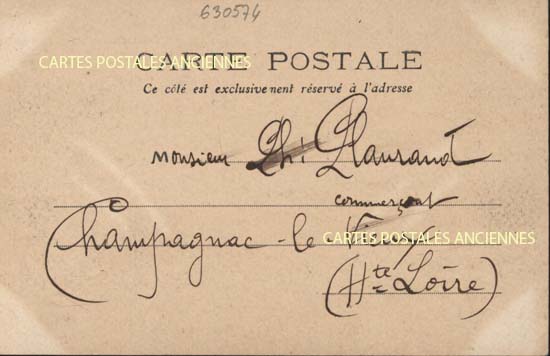 630574
CARTES POSTALES ANCIENNES
CARTE POSTALE
Ce côté est exclusivement réservé à l'adresse
Monsieur Ph: Plaurand
commerçant
Champagnac-le-Vieux
CARTES POSTALES ANCIENNES
(Hte Loire)